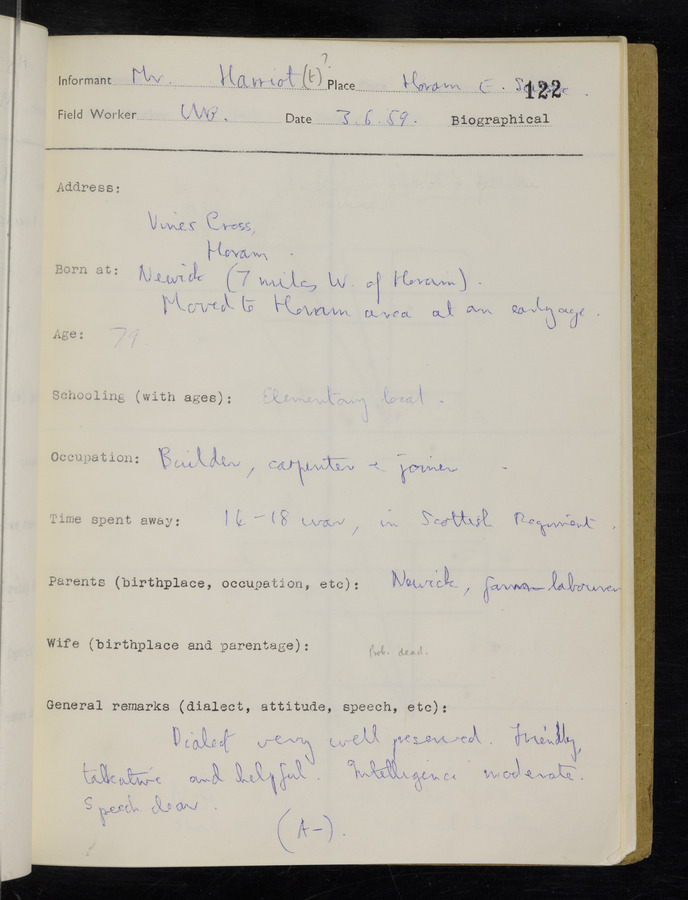 Informant Mr. Harriot(t)? Place Horam E. 122
Field Worker Date 3.6.59. Biographical
Address:
Vines Cross,
Horam.
Born at: Newick (7 miles W. of Horam).
Moved to Horam area at an early age.
Age: 79
Schooling (with ages): Elementary local.
Occupation: Builder, carpenter & joiner.
Time spent away: 14-18 war, in Scottish Regiment.
Parents (birthplace, occupation, etc): Newick, farm labourer
Wife (birthplace and parentage): Prob. dead.
General remarks (dialect, attitude, speech, etc):
Dialect very well preserved. Friendly,
talkative and helpful. Intelligence moderate.
Speech clear.
(A-).